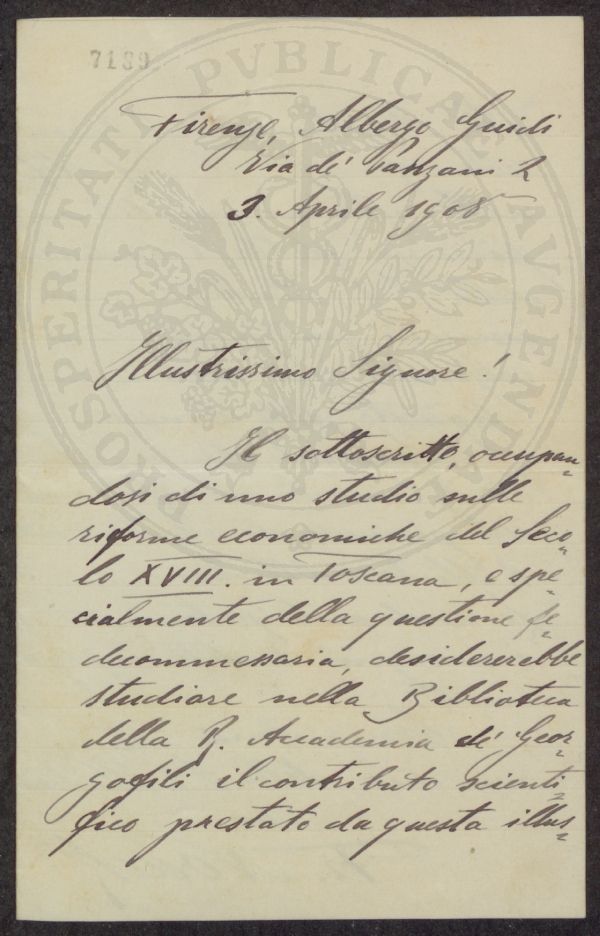 7189
PROSPERITATI PVBLICAE AVGENDAE
Firenze, Albergo Guidi
Via de' Panzani 2
3. Aprile 1908
Illustrissimo Signore!
Il sottoscritto, occupan=
dosi di uno studio sulle
riforme economiche del Seco=
lo XVIII. in Toscana, e spe=
cialmente della questione fe=
decommessaria, desidererebbe
studiare nella Biblioteca
della R. Accademia de' Geor=
gofili il contributo scienti=
fico prestato da questa illus=